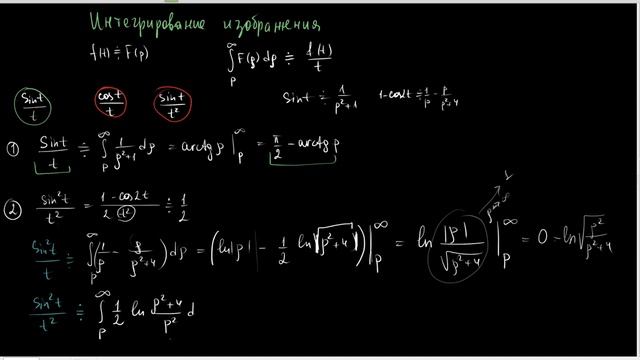 Интегрирование изображения
f(t) ≑ F(p)   ∫_p^∞ F(p)dp ≑ f(t)/t
sint/t   cost/t   sint/t²   sint ≑ 1/(p²+1)   1-cos2t ≑ 1/p - p/(p²+4)
① sint/t ≑ ∫_p^∞ 1/(p²+1) dp = arctg p |_p^∞ = π/2 - arctg p
② sin²t/t² = (1-cos2t)/(2 t²) ≑ 1/2
sin²t/t ≑ ∫_p^∞ (1/p - p/(p²+4)) dp = (ln|p| - 1/2 ln|p²+4|) |_p^∞ = ln |p|/√(p²+4) |_p^∞ = 0 - ln √(p²/(p²+4))
p→∞ 1
sin²t/t² ≑ ∫_p^∞ 1/2 ln (p²+4)/p² d